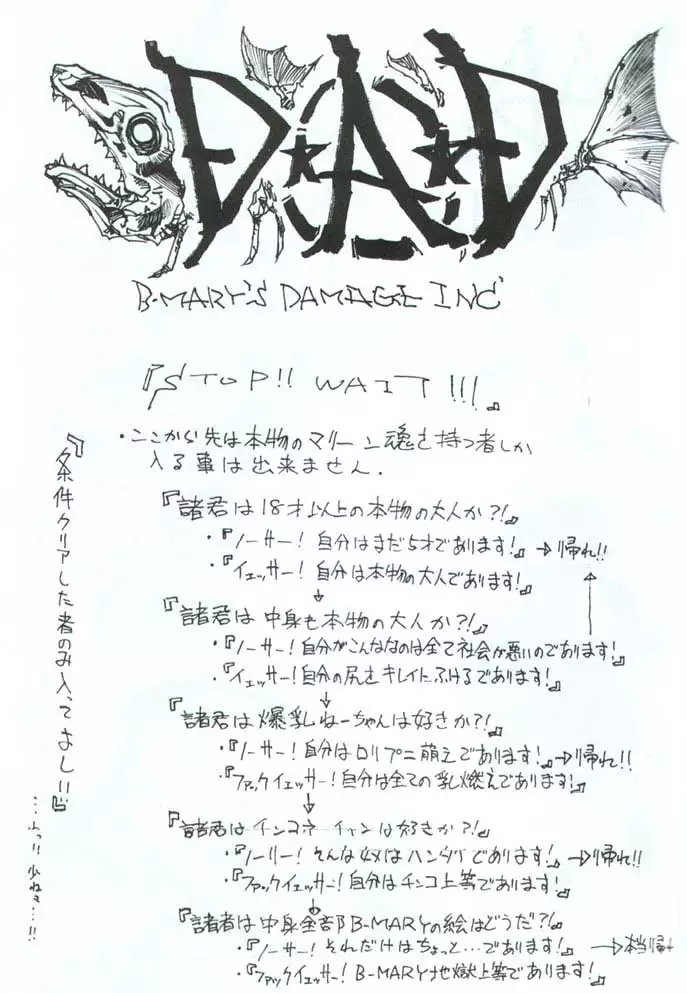 D★A★D
B-MARY'S DAMAGE INC
『STOP!! WAIT!!!』
・ここから先は本物のマリーン魂を持つ者しか
入る事は出来ません.
『諸君は18才以上の本物の大人か?!』
・『ノーサー!自分はまだ5才であります!』→帰れ!!
・『イエッサー!自分は本物の大人であります!』
↓
『諸君は中身も本物の大人か?!』
・『ノーサー!自分がこんななのは全て社会が悪いのであります!』
・『イエッサー!自分の尻をキレイにふけるであります!』
↓
『諸君は爆乳ねーちゃんは好きか?!』
・『ノーサー!自分はロリプニ萌えであります!』→帰れ!!
・『ファックイエッサー!自分は全ての乳燃えであります!』
↓
『諸君はチンコネーチャンは好きか?!』
・『ノーサー!そんな奴はハンタイであります!』→帰れ!!
・『ファックイエッサー!自分はチンコ上等であります!』
↓
『諸者は中身全部B-MARYの絵はどうだ?!』
・『ノーサー!それだけはちょっと…であります!』→本当帰れ
・『ファックイエッサー!B-MARY地獄上等であります!』
『条件クリアした者のみ入ってよし!!』